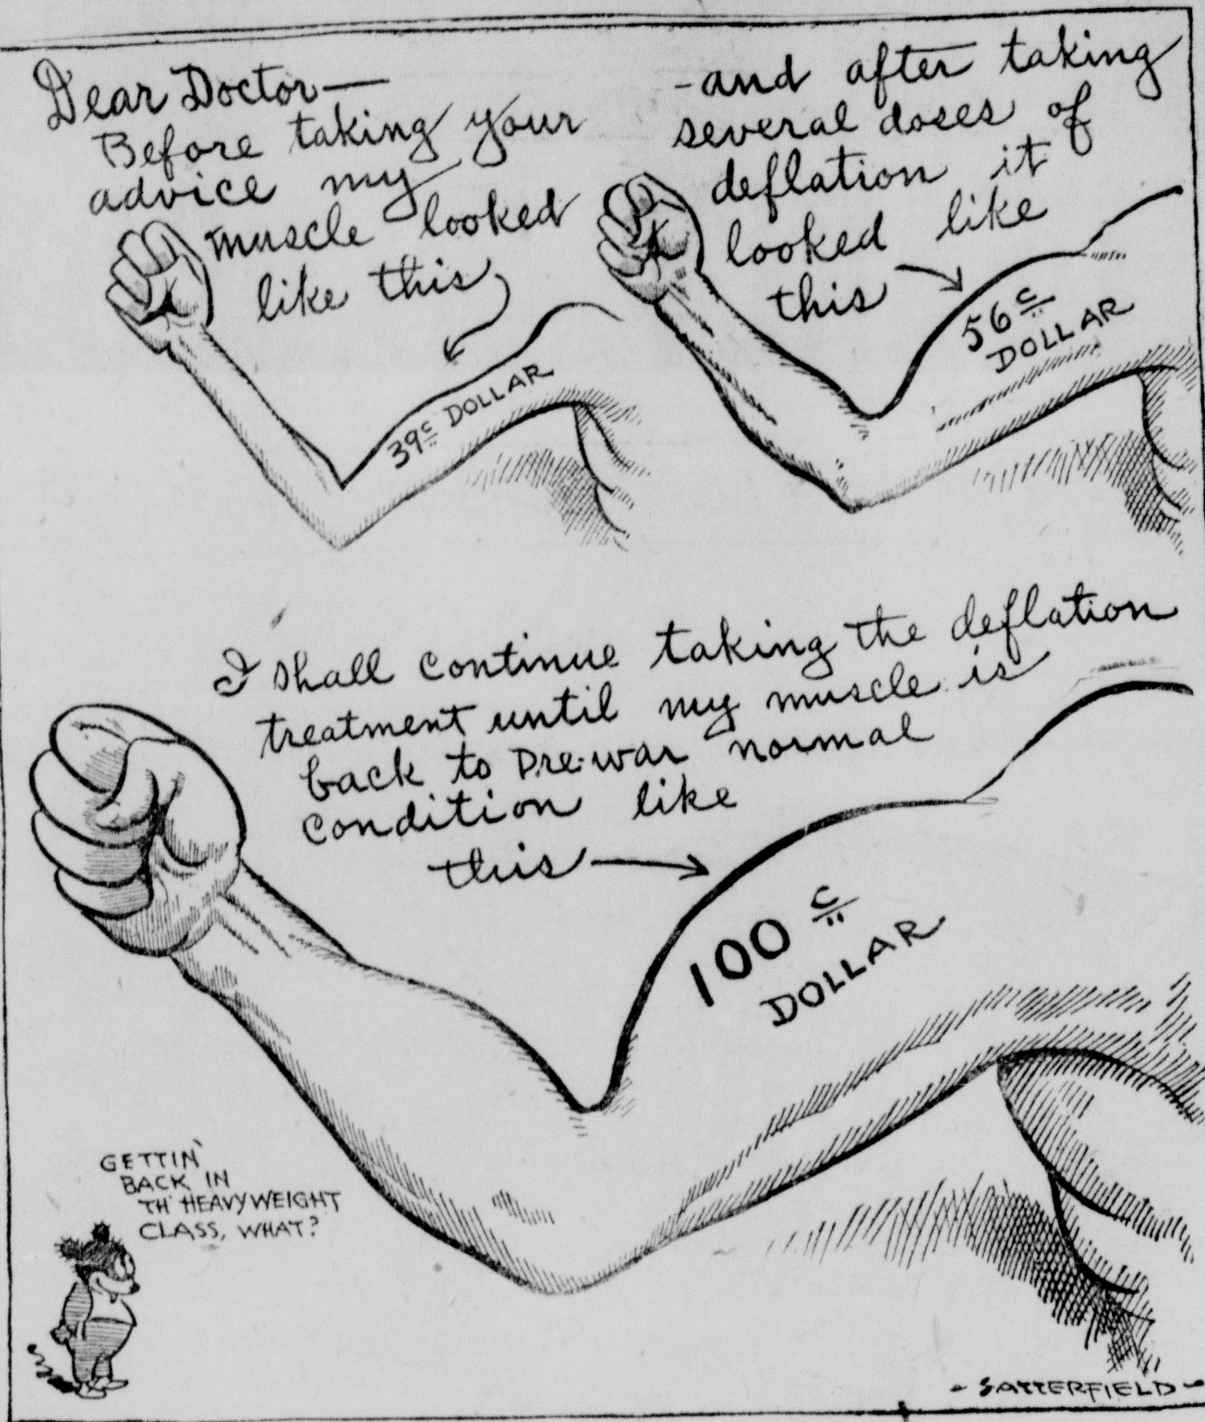 Dear Doctor—
Before taking your
advice my
muscle looked
like this
39¢ DOLLAR
-and after taking
several doses of
deflation it
looked like
this
56¢
DOLLAR
I shall continue taking the deflation
treatment until my muscle is
back to pre-war normal
condition like
this
100¢
DOLLAR
GETTIN'
BACK IN
TH' HEAVYWEIGHT
CLASS, WHAT?
- SATTERFIELD -